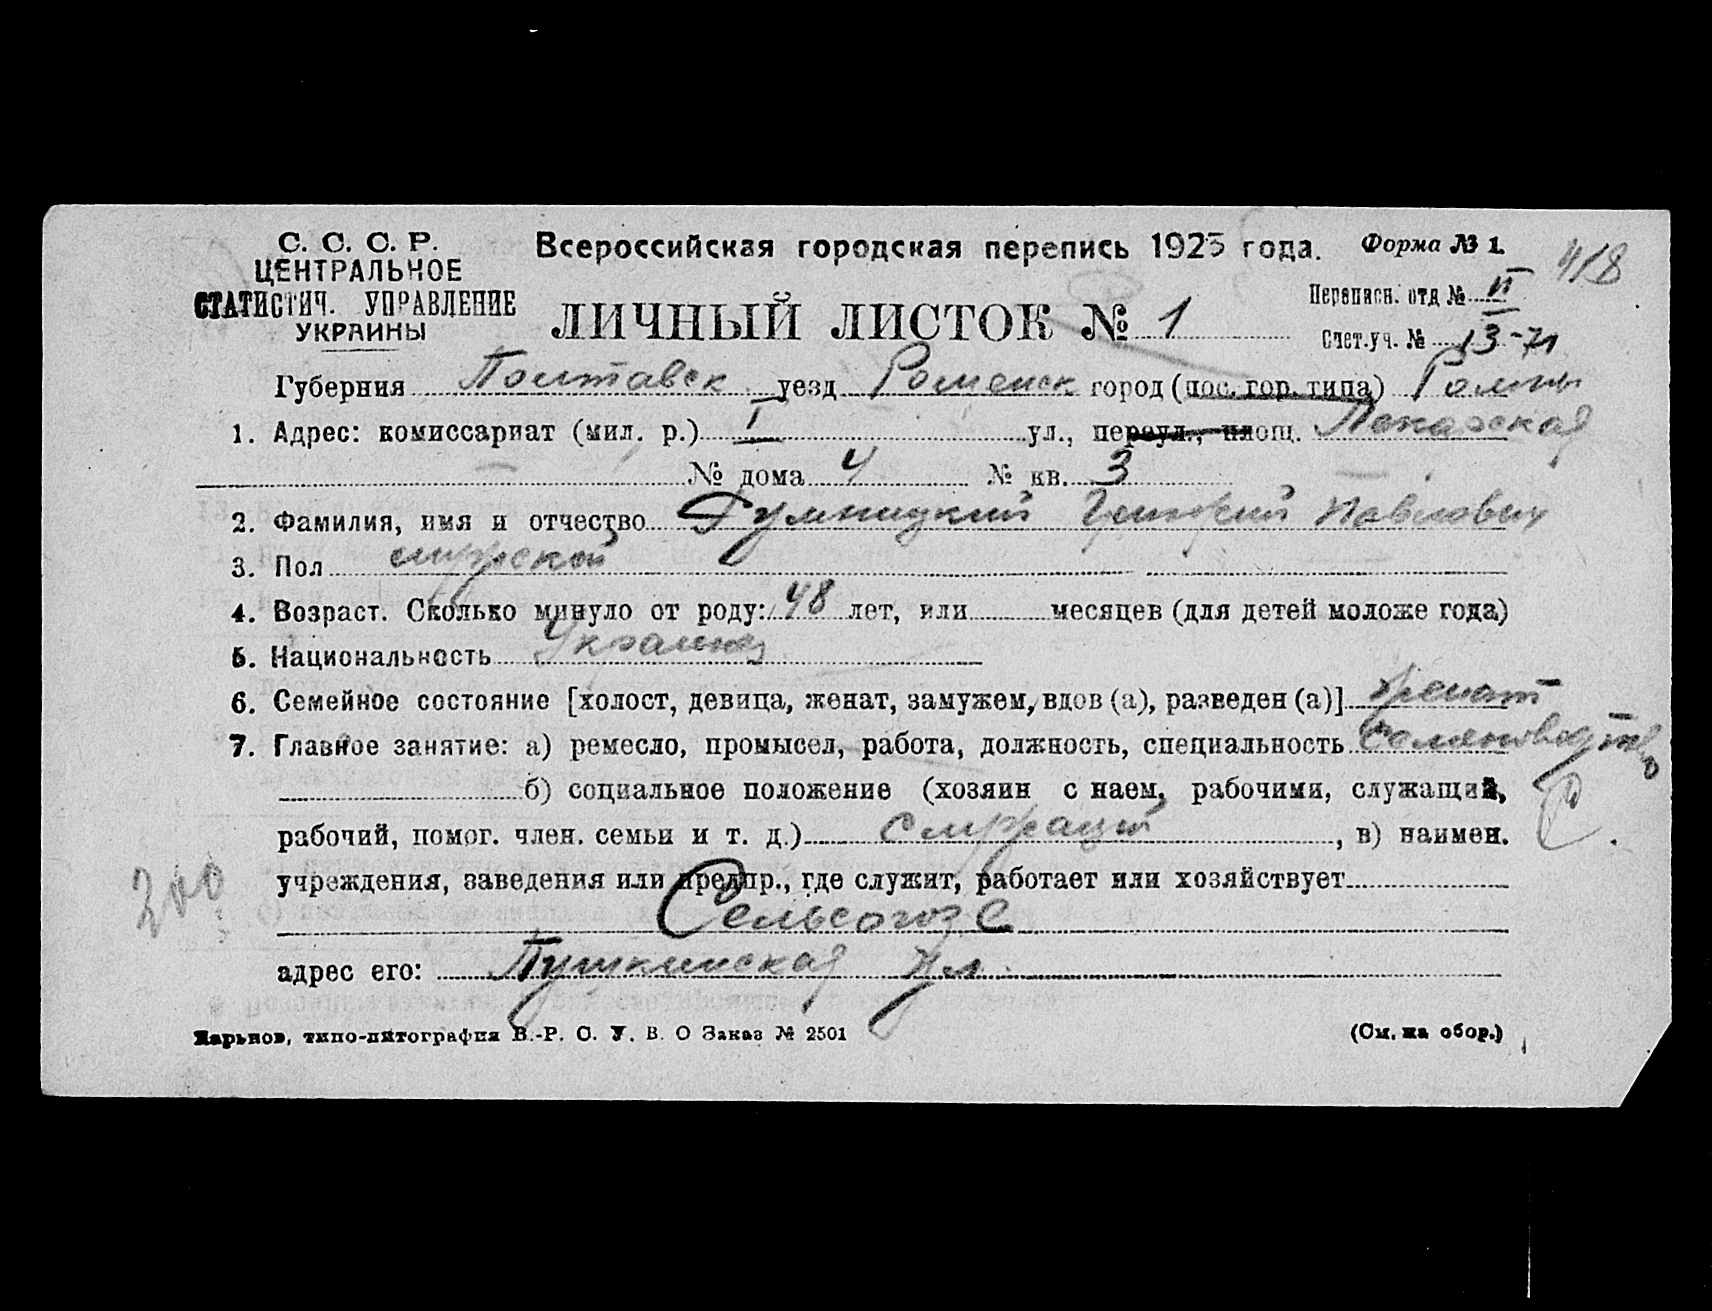 С. С. С. Р.
ЦЕНТРАЛЬНОЕ
СТАТИСТИЧ. УПРАВЛЕНИЕ
УКРАИНЫ
Всероссийская городская перепись 1923 года.
Форма № 1.
418
ЛИЧНЫЙ ЛИСТОК № 1
Переписн. отд № II
Счет.уч. № 13-71
Губерния Полтавск уезд Роменск город (пос. гор. типа) Ромны
1. Адрес: комиссариат (мил. р.) I ул., переул., площ. Пекарская
№ дома 4 № кв. 3
2. Фамилия, имя и отчество Павлович
3. Пол мужской
4. Возраст. Сколько минуло от роду: 48 лет, или месяцев (для детей моложе года)
5. Национальность Украинец
6. Семейное состояние [холост, девица, женат, замужем, вдов (а), разведен (а)] женат
7. Главное занятие: а) ремесло, промысел, работа, должность, специальность
б) социальное положение (хозяин с наем. рабочими, служащий,
рабочий, помог. член. семьи и т. д.) служащий, в) наимен.
200
учреждения, заведения или предпр., где служит, работает или хозяйствует
Сельсоюз
адрес его: Пушкинская ул.
Харьков, типо-литография В.-Р. С. У. В. О Заказ № 2501
(См. на обор.)